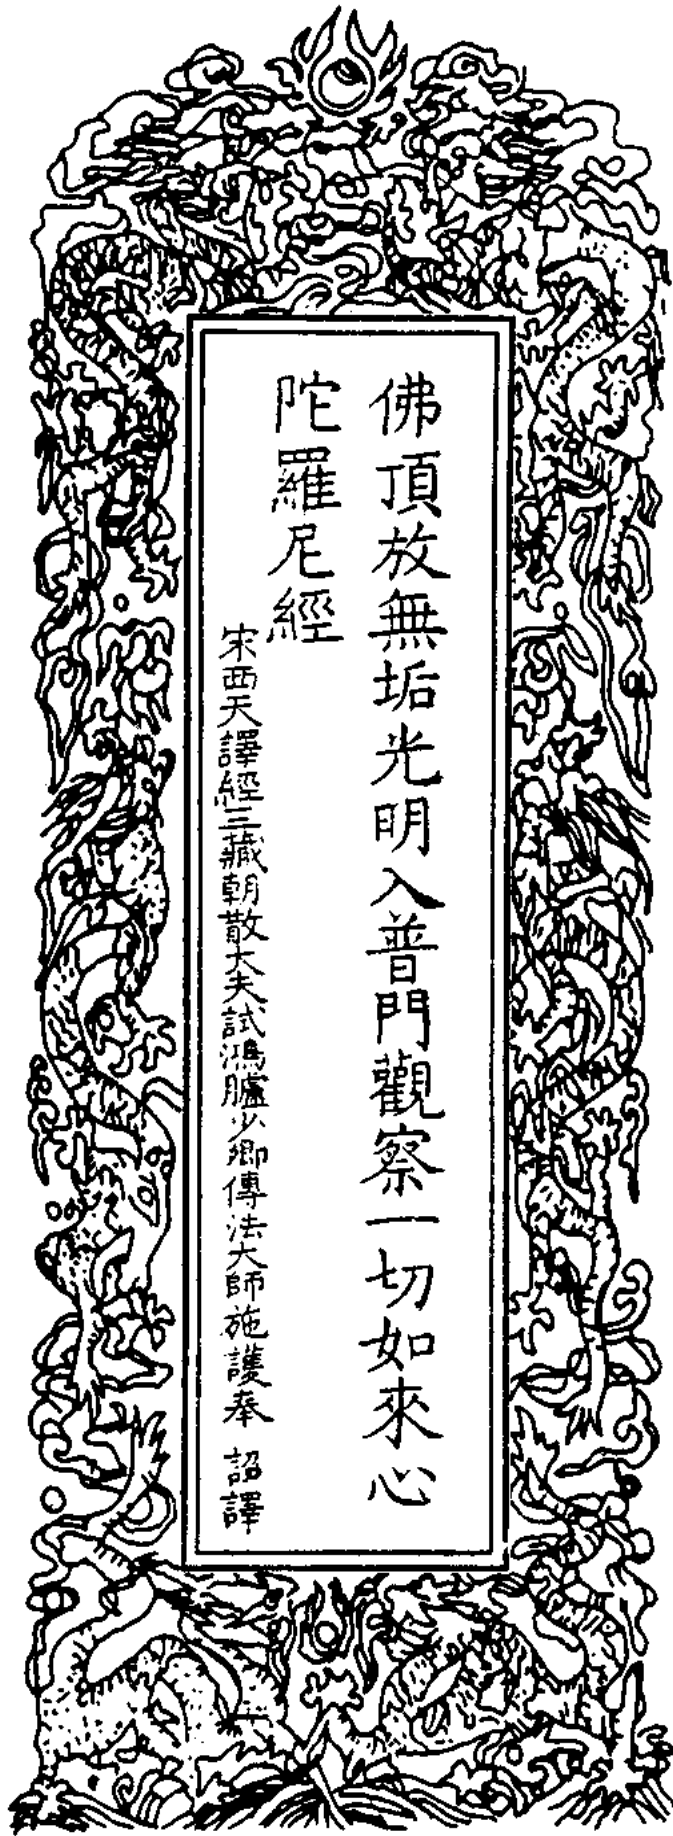 佛頂放無垢光明入普門觀察一切如來心
陀羅尼經
宋西天譯經三藏朝散大夫試鴻臚少卿傳法大師施護奉 詔譯